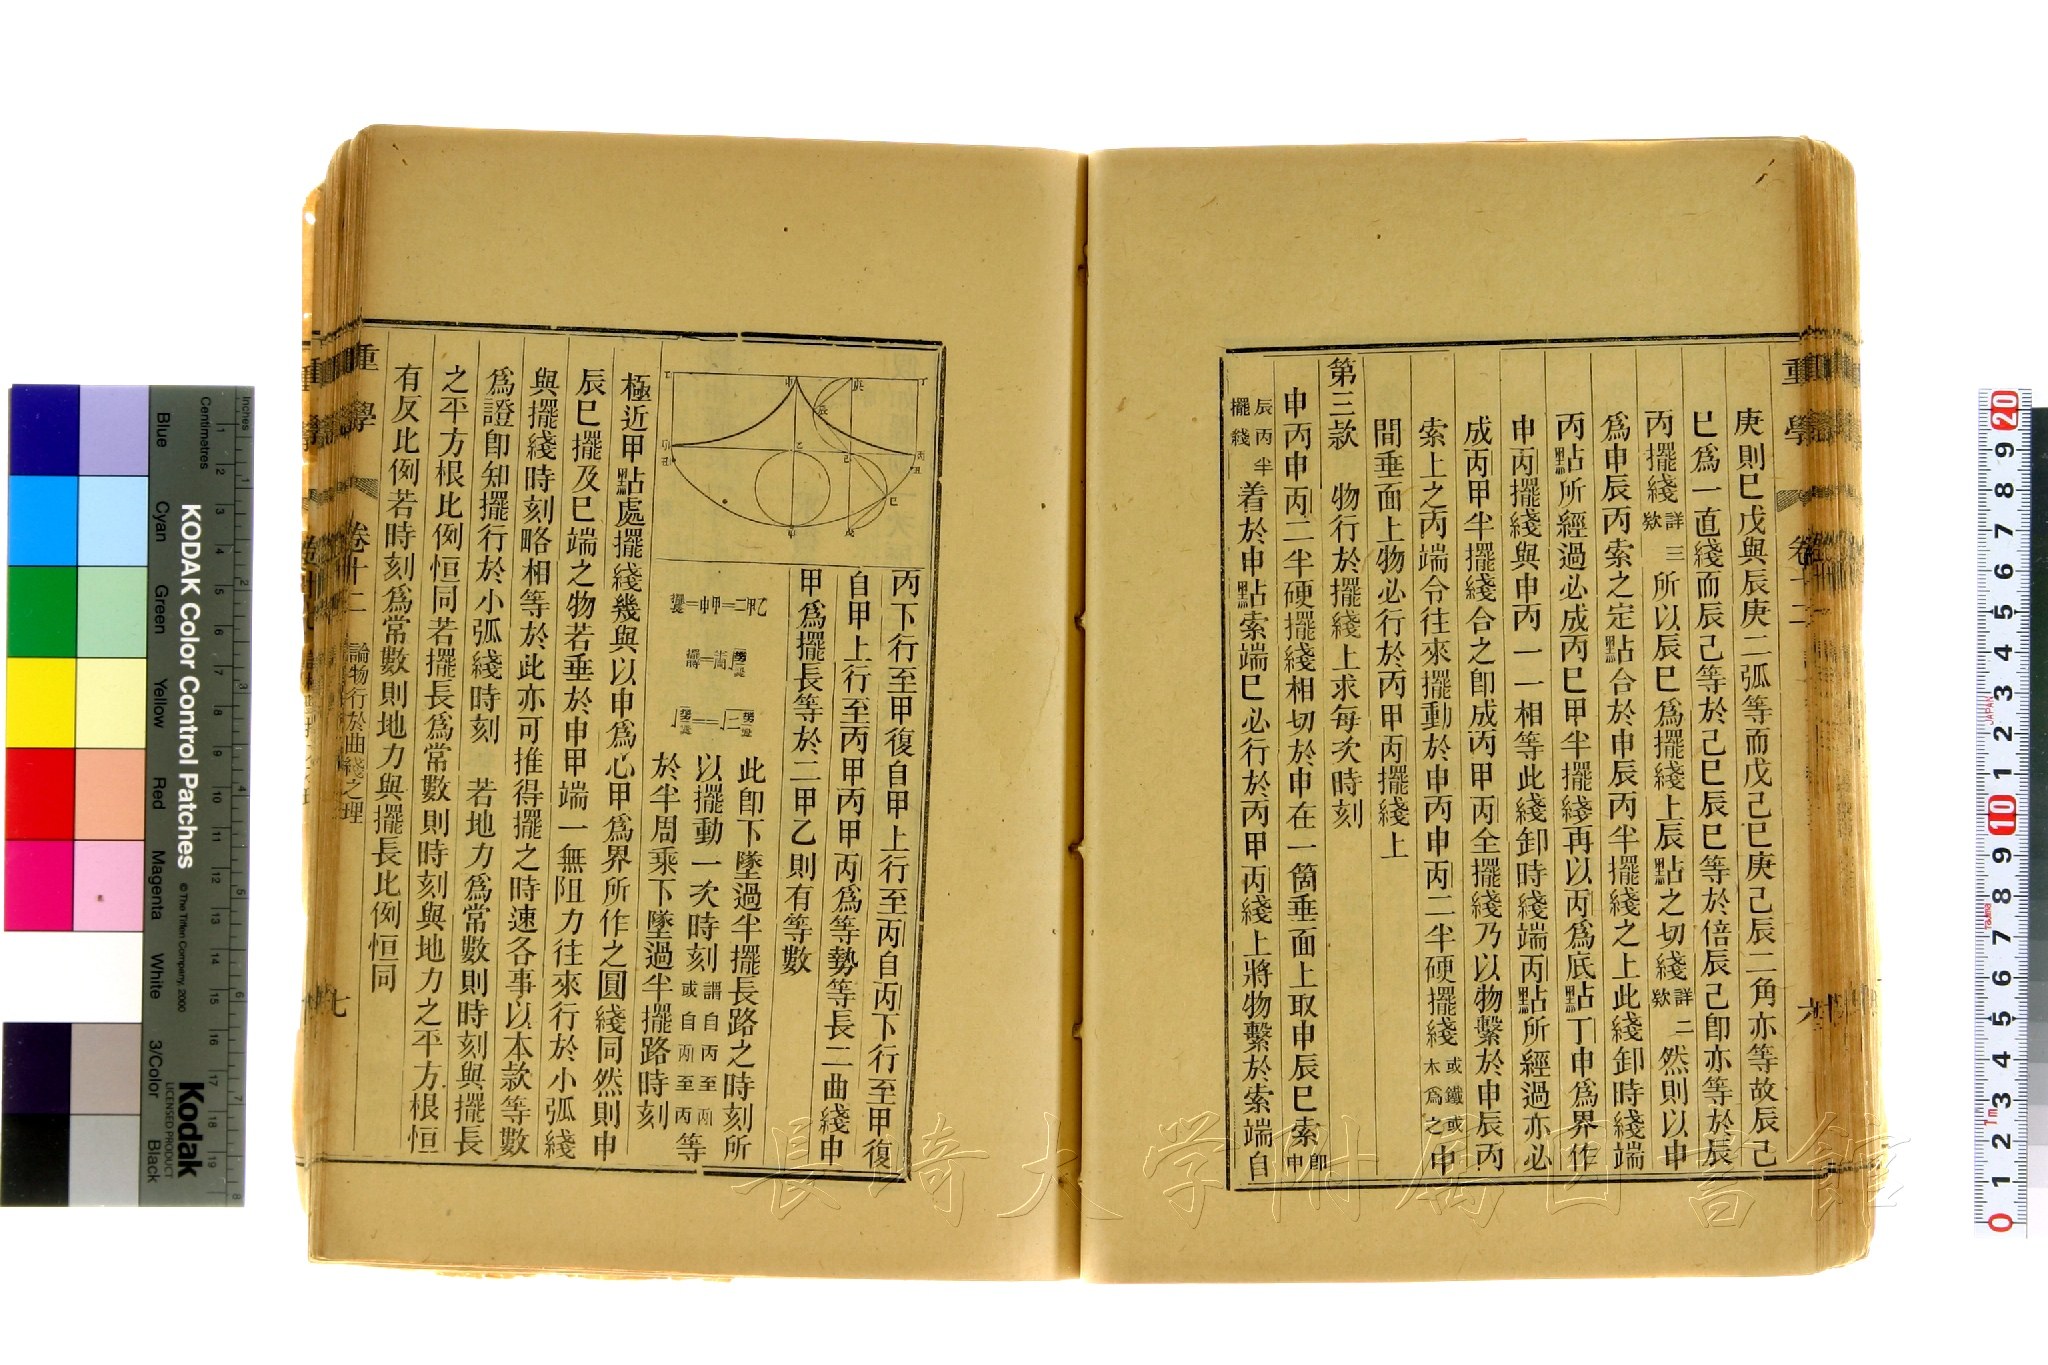 庚則巳戊與辰庚二弧等而戊己巳庚己辰二角亦等故辰己
巳爲一直綫而辰己等於己巳辰巳等於倍辰己卽亦等於辰
丙擺綫詳三款所以辰巳爲擺綫上辰點之切綫詳二款然則以申
爲申辰丙索之定點合於申辰丙半擺綫之上此綫卸時綫端
丙點所經過必成丙巳甲半擺綫再以丙爲底點丁申爲界作
申丙擺綫與申丙一一相等此綫卸時綫端丙點所經過亦必
成丙甲半擺綫合之卽成丙甲丙全擺綫乃以物繫於申辰丙
索上之丙端令往來擺動於申丙申丙二半硬擺綫或鐵或木爲之中
間垂面上物必行於丙甲丙擺綫上
第三款 物行於擺綫上求每次時刻
申丙申丙二半硬擺綫相切於申在一箇垂面上取申辰巳索卽申
辰丙半擺綫着於申點索端巳必行於丙甲丙綫上將物繫於索端自
重學 卷十二 六
丙下行至甲復自甲上行至丙自丙下行至甲復
自甲上行至丙甲丙甲丙爲等勢等長二曲綫申
甲爲擺長等於二甲乙則有等數
擺長=申甲=二甲乙
此卽下墜過半擺長路之時刻所
以擺動一次時刻謂自丙至丙或自丙至丙等
於半周乘下墜過半擺路時刻
極近甲點處擺綫幾與以申爲心甲爲界所作之圓綫同然則申
辰巳擺及巳端之物若垂於申甲端一無阻力往來行於小弧綫
與擺綫時刻略相等於此亦可推得擺之時速各事以本款等數
爲證卽知擺行於小弧綫時刻 若地力爲常數則時刻與擺長
之平方根比例恒同若擺長爲常數則時刻與地力之平方根恒
有反比例若時刻爲常數則地力與擺長比例恒同
重學 卷十二 論物行於曲綫之理 七
長崎大学附属図書館
KODAK Color Control Patches
©The Tiffen Company, 2000
Kodak
LICENSED PRODUCT
Blue Cyan Green Yellow Red Magenta White 3/Color Black
Inches
Centimetres
JAPAN